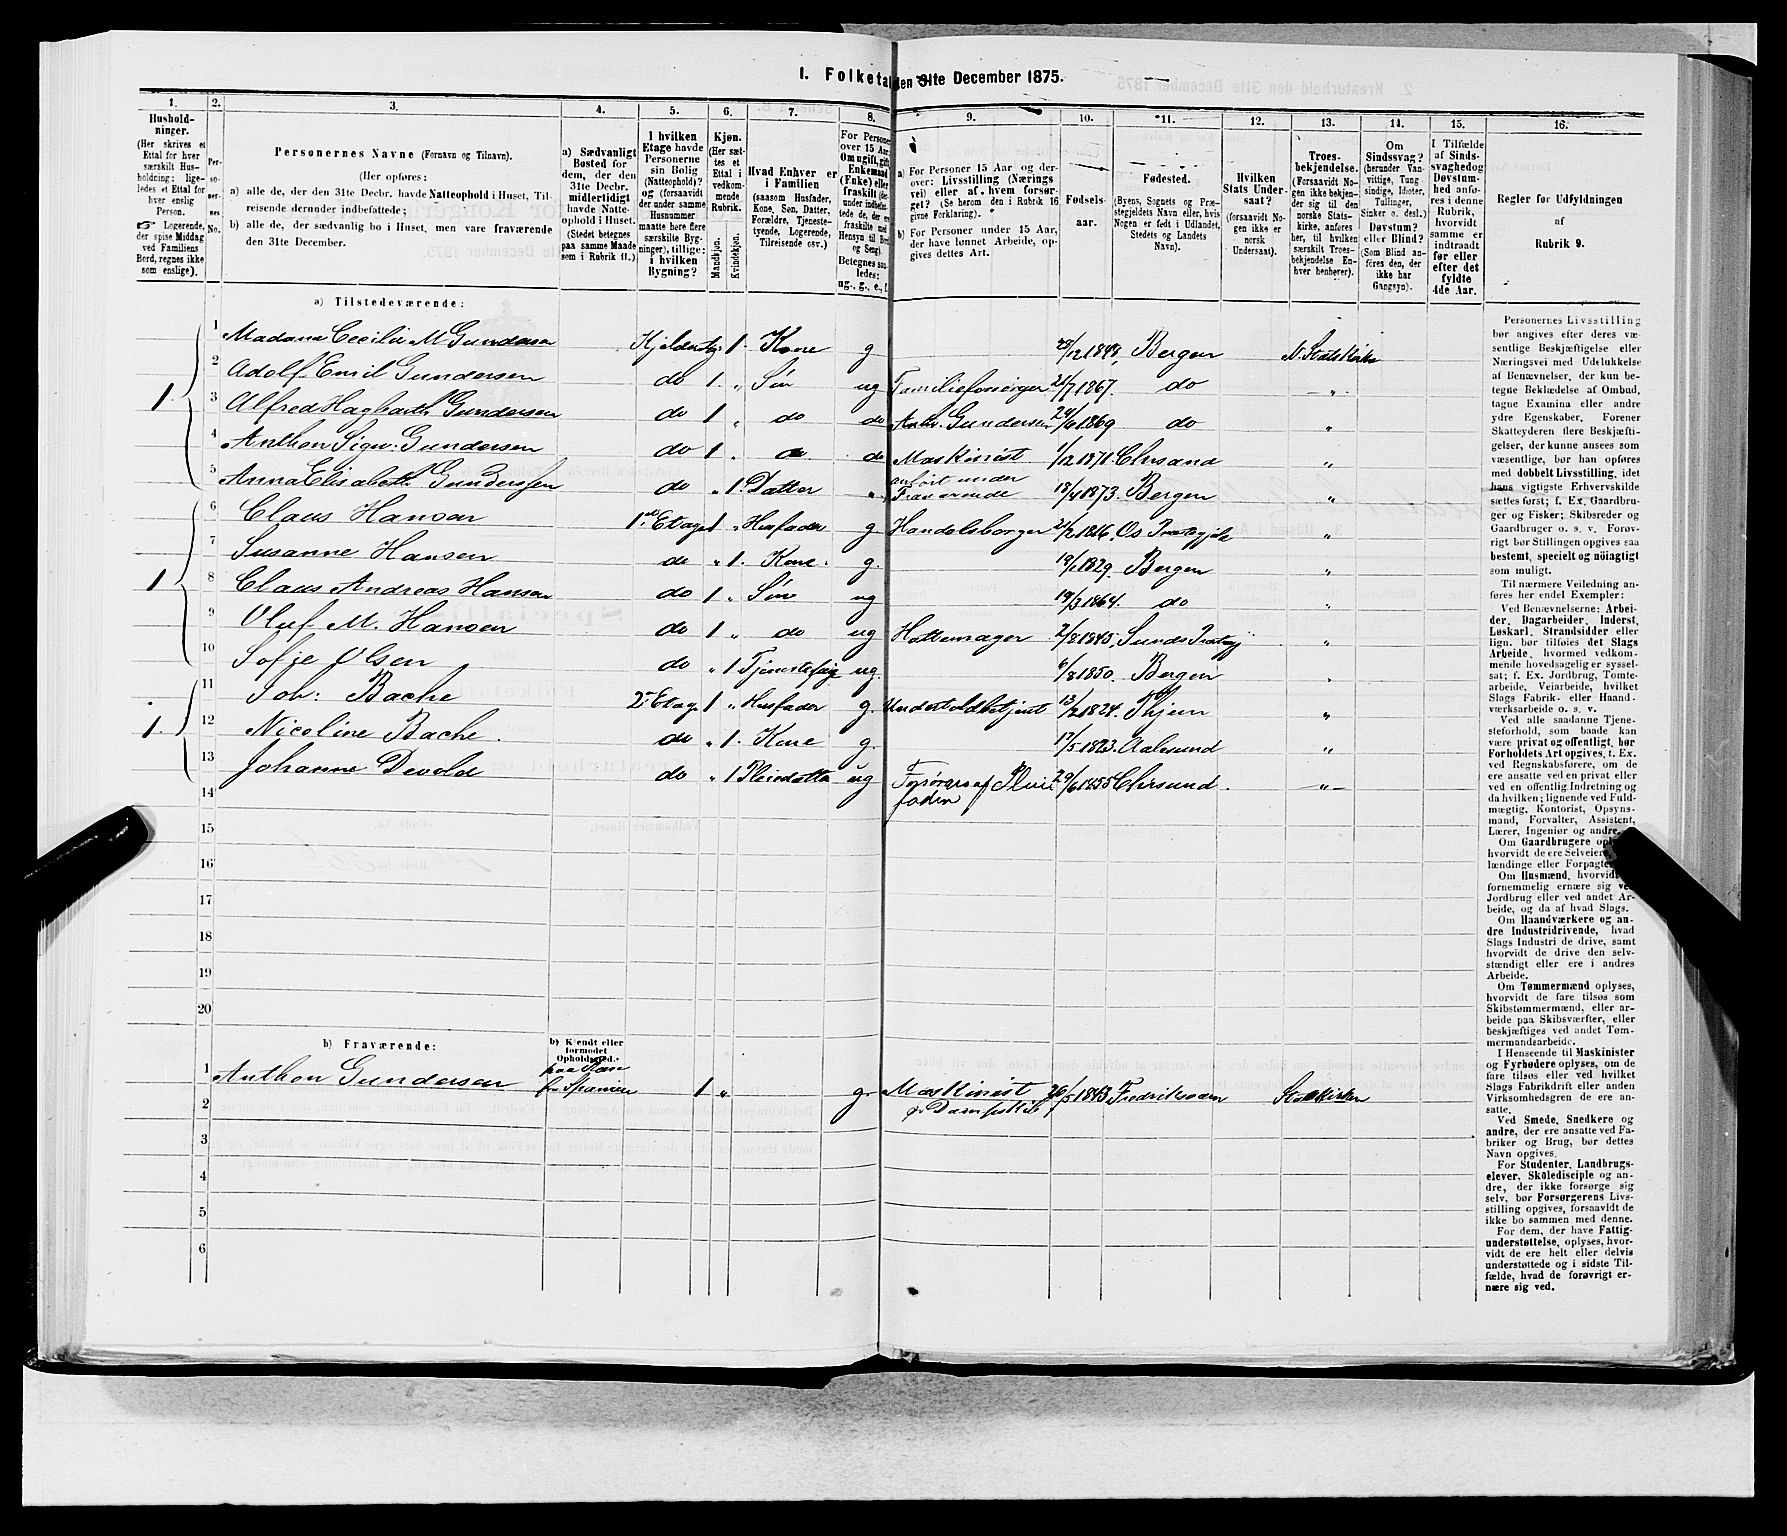 1. Folketal den 31te December 1875.
1. 2. 3. 4. 5. 6. 7. 8. 9. 10. 11. 12. 13. 14. 15. 16.
Husholdninger.
(Her skrives et
Ettal for hver
særskilt Husholdning;
ligeledes et Ettal for
hver enslig
Person.
Logerende,
der spise Middag
ved Familiens
Bord, regnes ikke
som enslige).
Personernes No.
Personernes Navne (Fornavn og Tilnavn).
(Her opføres:
a) alle de, der den 31te Decbr. havde Natteophold i Huset, Tilreisende derunder indbefattede;
b) alle de, der sædvanlig bo i Huset, men vare fraværende
den 31te December.
a) Sædvanligt
Bosted for
dem, der den
31te Decbr.
midlertidigt
havde Natteophold
i Huset.
(Stedet betegnes
paa samme Maade
som i Rubrik 11.)
I hvilken
Etage havde
Personerne
sin Bolig
(Natteophold)?
og (forsaavidt
der under samme
Husnummer
maatte høre flere
særskilte Bygninger),
tillige:
i hvilken
Bygning?
Kjøn.
(Her sættes
et
Ettal i
vedkommende
Rubrik.
Mandkjøn.
Kvindekjøn.
Hvad Enhver er
i Familien
(saasom Husfader,
Kone, Søn, Datter,
Forældre, Tjenestetyende,
Logerende,
Tilreisende osv.)
For Personer
over 15 Aar:
Om ugift, gift,
Enkemand
(Enke) eller
fraskilt
Betegnes saaledes:
ug., g., e., f.
a) For Personer 15 Aar og derover:
Livsstilling (Næringsvei)
eller af hvem forsørget?
(Se herom den i Rubrik 16
givne Forklaring).
b) For Personer under 15 Aar,
der have lønnet Arbeide, opgives
dettes Art.
Fødselsaar.
Fødested.
(Byens, Sognets og Præstegjeldets
Navn eller, hvis
Nogen er født i Udlandet,
Stedets og Landets
Navn).
Hvilken
Stats Undersaat?
(forsaavidt Nogen
ikke er
norsk
Undersaat).
Troesbekjendelse.
(Forsaavidt Nogen
ikke bekjender
sig til den
norske Statskirke,
anføres
her, til hvilken
særskilt Troesbekjendelse
Enhver
henhører).
Om
Sindssvag?
(herunder Vanvittige,
Tungsindige,
Idioter,
Tullinger,
Sinker o. desl.)
Døvstum?
eller Blind?
(Som Blind anføres
den, der
ikke har
Gangsyn).
I Tilfælde
af Sindssvaghed
og
Døvstumhed
anføres
i denne
Rubrik,
hvorvidt
samme er
indtraadt
før eller
efter det
fyldte
4de Aar.
Regler for Udfyldningen
af
Rubrik 9.
a) Tilstedeværende:
1 Madame Cecilie M Gundersen Kjelder 1. Kone g 1848, Bergen N. Statskirke
2 Adolf Emil Gundersen do 1. „ Søn ug Familieforsørger 1867. do „
1 3 Alfred Hagbarth Gundersen do 1 „ do do Anth. Gundersen 1869 do „
4 Anthon Sigv. Gundersen do 1 „ do do Maskinist 1/12 1871 Chrsand „
5 Anna Elisabeth Gunderssen do „ 1. Datter „ anført under Fraværende 18/4 1873. Bergen „
6 Claus Hansen 1ste Etage 1 „ Husfader g Handelsborger 1816, Os „
7 Susanne Hansen do „ 1. Kone g. 19/1 1829. Bergen „
1 8 Claus Andreas Hansen do 1 „ Søn ug 19/3 1864. do „
9 Oluf M. Hansen do 1 „ do ug Hattemager 2/8 1845, Sunds „
10 Sofje Olsen do „ 1 Tjenestepige ug. 6/8 1850. Bergen „
11 Joh: Bache 2. Etage 1 „ Husfader g. Undertoldbetjent 13/2 1824. Thjem „
1. 12 Nicoline Bache. do „ 1. Kone g. 17/5 1823. Aalesund „
13 Johanne Devold do „ 1 Pleiedatter ug Forsørges af Pleiefaderen 29/6 1855 Chrsund. „
14
15
16
17
18
19
20
b) Fraværende:
b) Kjendt eller
formodet
Opholdssted.
1 Anthon Gundersen paa Reise fra Spanien 1 „ g. Maskinist paa Dampskib 26/5 1843, Fredrikværn Statskirken
2
3
4
5
6
Personernes Livsstilling
bør angives efter deres væsentlige
Beskjæftigelse eller
Næringsvei med Udelukkelse
af Benævnelser, der kun betegne
Beklædelse af Ombud,
tagne Examina eller andre
ydre Egenskaber. Forener
Skatteyderen flere Beskjæftigelser,
der kunne ansees som
væsentlige, bør han opføres
med dobbelt Livsstilling, idet
hans vigtigste Erhvervskilde
sættes først; f. Ex. Gaardbruger
og Fisker; Skibsreder og
Gaardbruger o. s. v. Forøvrigt
bør Stillingen opgives saa
bestemt, specielt og nøiagtigt
som muligt.
Til nærmere Veiledning anføres
her endel Exempler:
Ved Benævnelserne: Arbeider,
Dagarbeider, Inderst,
Løskarl, Strandsidder eller
lign. bør tilføies det Slags
Arbeide, hvormed vedkommende
hovedsagelig er sysselsat;
f. Ex. Jordbrug, Tomtearbeide,
Veiarbeide, hvilket
Slags Fabrik- eller Haandværksarbeide
o. s. v.
Ved alle saadanne Tjenesteforhold,
som baade kan
være privat og offentligt, bør
Forholdets Art opgives, t. Ex.
ved Regnskabsførere, om de
ere ansatte ved en privat eller
ved en offentlig Indretning og
da hvilken; lignende ved Fuldmægtig,
Kontorist, Opsynsmand,
Forvalter, Assistent,
Lærer, Ingeniør og andre.
Om Gaardbrugere
hvorvidt de ere Selveiere,
lændinge eller Forpagtere.
Om Husmænd, hvorvidt
fornemmelig ernære sig ved
Jordbrug eller ved andet Arbeide,
og da af hvad Slags.
Om Haandværkere og andre
Industridrivende, hvad
Slags Industri de drive, samt
hvorvidt de drive den selvstændigt
eller ere i andres
Arbeide.
Om Tømmermænd oplyses,
hvorvidt de fare tilsøs som
Skibstømmermænd, eller arbeide
paa Skibsværfter, eller
beskjæftiges ved andet Tømmermandsarbeide.
I Henseende til Maskinister
og Fyrbødere oplyses, om de
fare tilsøs eller ved hvilket
Slags Fabrikdrift eller anden
Virksomhedsgren de ere ansatte.
Ved Smede, Snedkere og
andre, der ere ansatte ved Fabriker
og Brug, bør dettes
Navn opgives.
For Studenter, Landbrugselever,
Skoledisciple og andre,
der ikke forsørge sig
selv, bør Forsørgerens Livsstilling
opgives, forsaavidt de
ikke bo sammen med denne.
For dem, der have Fattigunderstøttelse,
oplyses, hvorvidt
de ere helt eller delvis
understøttede og i sidste Tilfælde,
hvad de forøvrigt ernære
sig ved.